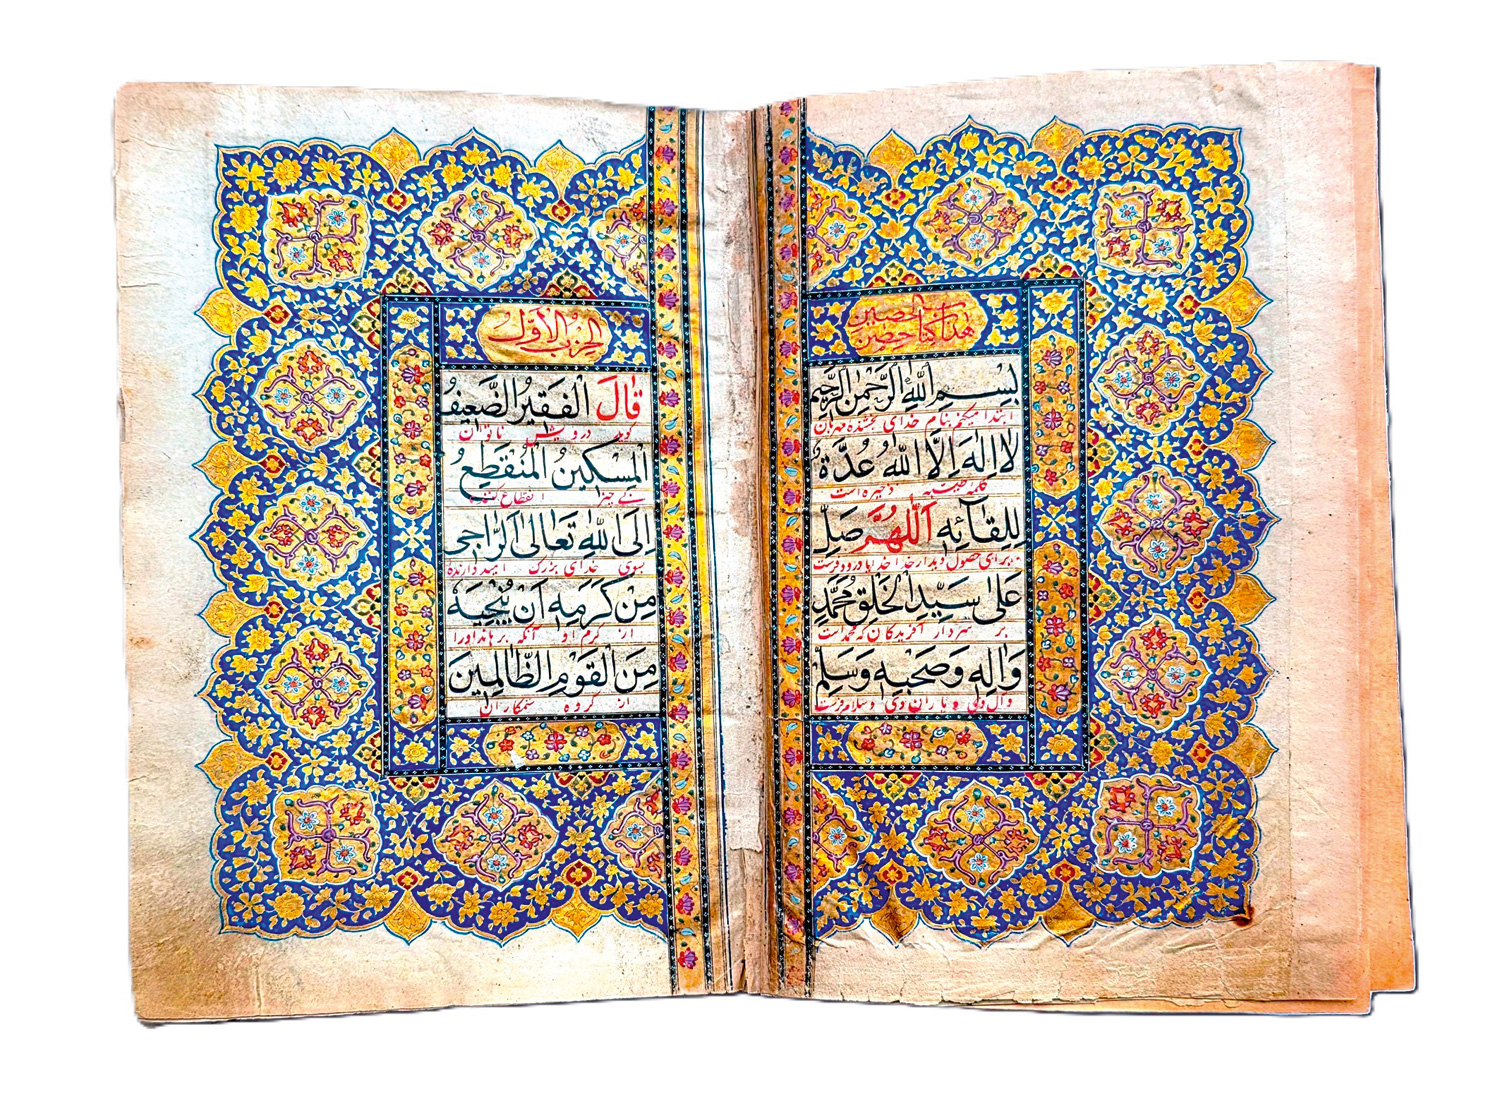 هذا كتاب حصن حصين
بِسْمِ اللهِ الرَّحْمٰنِ الرَّحِيمِ
ابتدا میکنم بنام خدای بخشنده مهربان
لَا اِلٰهَ اِلَّا اللهُ عُدَّةٌ
کلمه طیبه ذخیره است
لِلِقَائِهِ اَللّٰهُمَّ صَلِّ
برای حصول دیدار خدا خدایا درود فرست
عَلٰى سَيِّدِ الْخَلْقِ مُحَمَّدٍ
بر سردار آفریدگان که محمد است
وَاٰلِهِ وَصَحْبِهِ وَسَلِّمْ
و آل وی و یاران وی و سلام فرست
الحزب الاول
قَالَ الْفَقِيرُ الضَّعِيفُ
گوید درویش ناتوان
الْمِسْكِينُ الْمُنْقَطِعُ
بی چیز انقطاع
اِلَى اللهِ تَعَالٰى الرَّاجِى
بسوی خدای بزرگ امید دارنده
مِنْ كَرَمِهِ اَنْ يُنْجِيَهُ
از کرم او آنکه برهاند اورا
مِنَ الْقَوْمِ الظَّالِمِينَ
از گروه ستمکاران